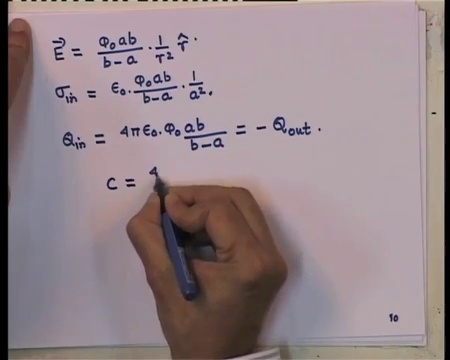 E⃗ = φ₀ab/(b-a) · 1/r² r̂.
σin = ε₀. φ₀ab/(b-a) · 1/a².
Qin = 4πε₀. φ₀ ab/(b-a) = - Qout.
C = 4
10